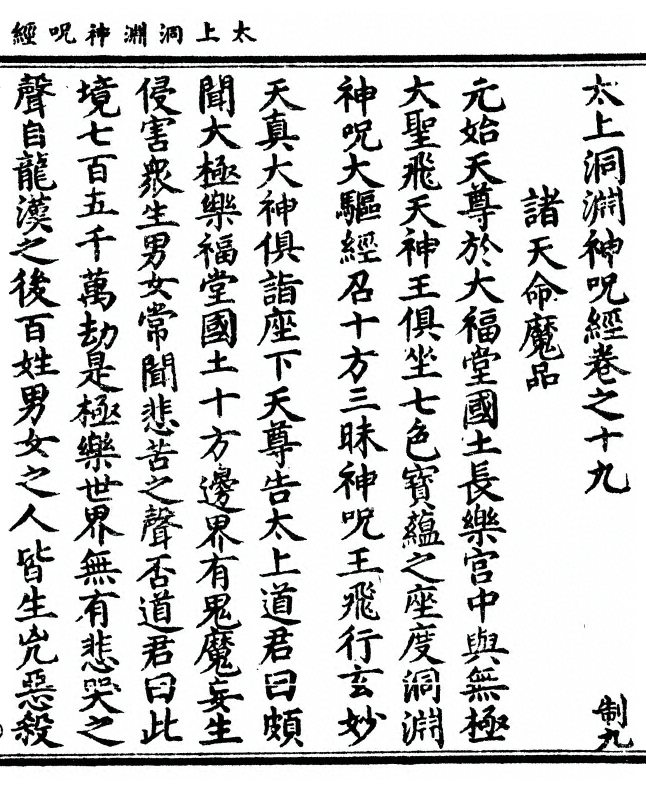 太上洞淵神呪經
太上洞淵神呪經卷之十九
制九
諸天命魔品
元始天尊於大福堂國土長樂宮中與無極
大聖飛天神王俱坐七色寶蘊之座度洞淵
神呪大驅經召十方三昧神呪王飛行玄妙
天真大神俱詣座下天尊告太上道君曰頗
聞大極樂福堂國土十方邊界有鬼魔妄生
侵害衆生男女常聞悲苦之聲否道君曰此
境七百五千萬劫是極樂世界無有悲哭之
聲自龍漢之後百姓男女之人皆生兇惡殺